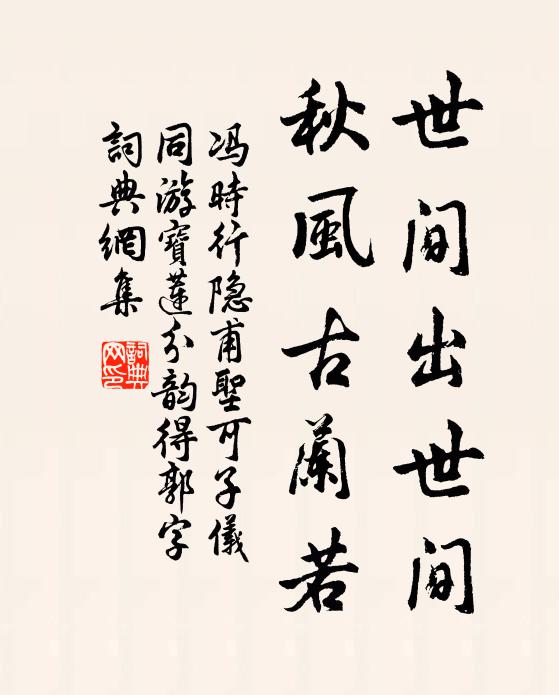 世間出世間
秋風古蘭若
冯時行隐甫聖可子儀
同游寶蓮分韵得郭字
詞典網集
詞典
网印